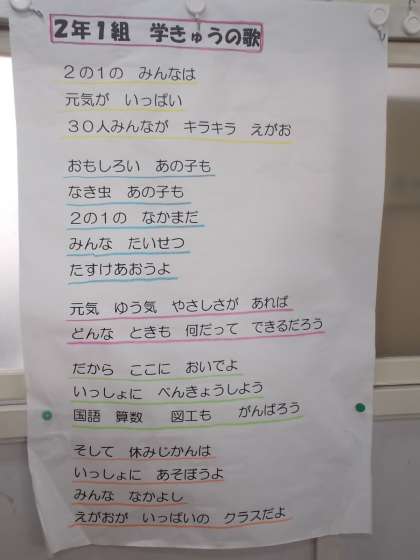 2年1組 学きゅうの歌
2の1の みんなは
元気が いっぱい
30人みんなが キラキラ えがお
おもしろい あの子も
なき虫 あの子も
2の1の なかまだ
みんな たいせつ
たすけあおうよ
元気 ゆう気 やさしさが あれば
どんな ときも 何だって できるだろう
だから ここに おいでよ
いっしょに べんきょうしよう
国語 算数 図工も がんばろう
そして 休みじかんは
いっしょに あそぼうよ
みんな なかよし
えがおが いっぱいの クラスだよ